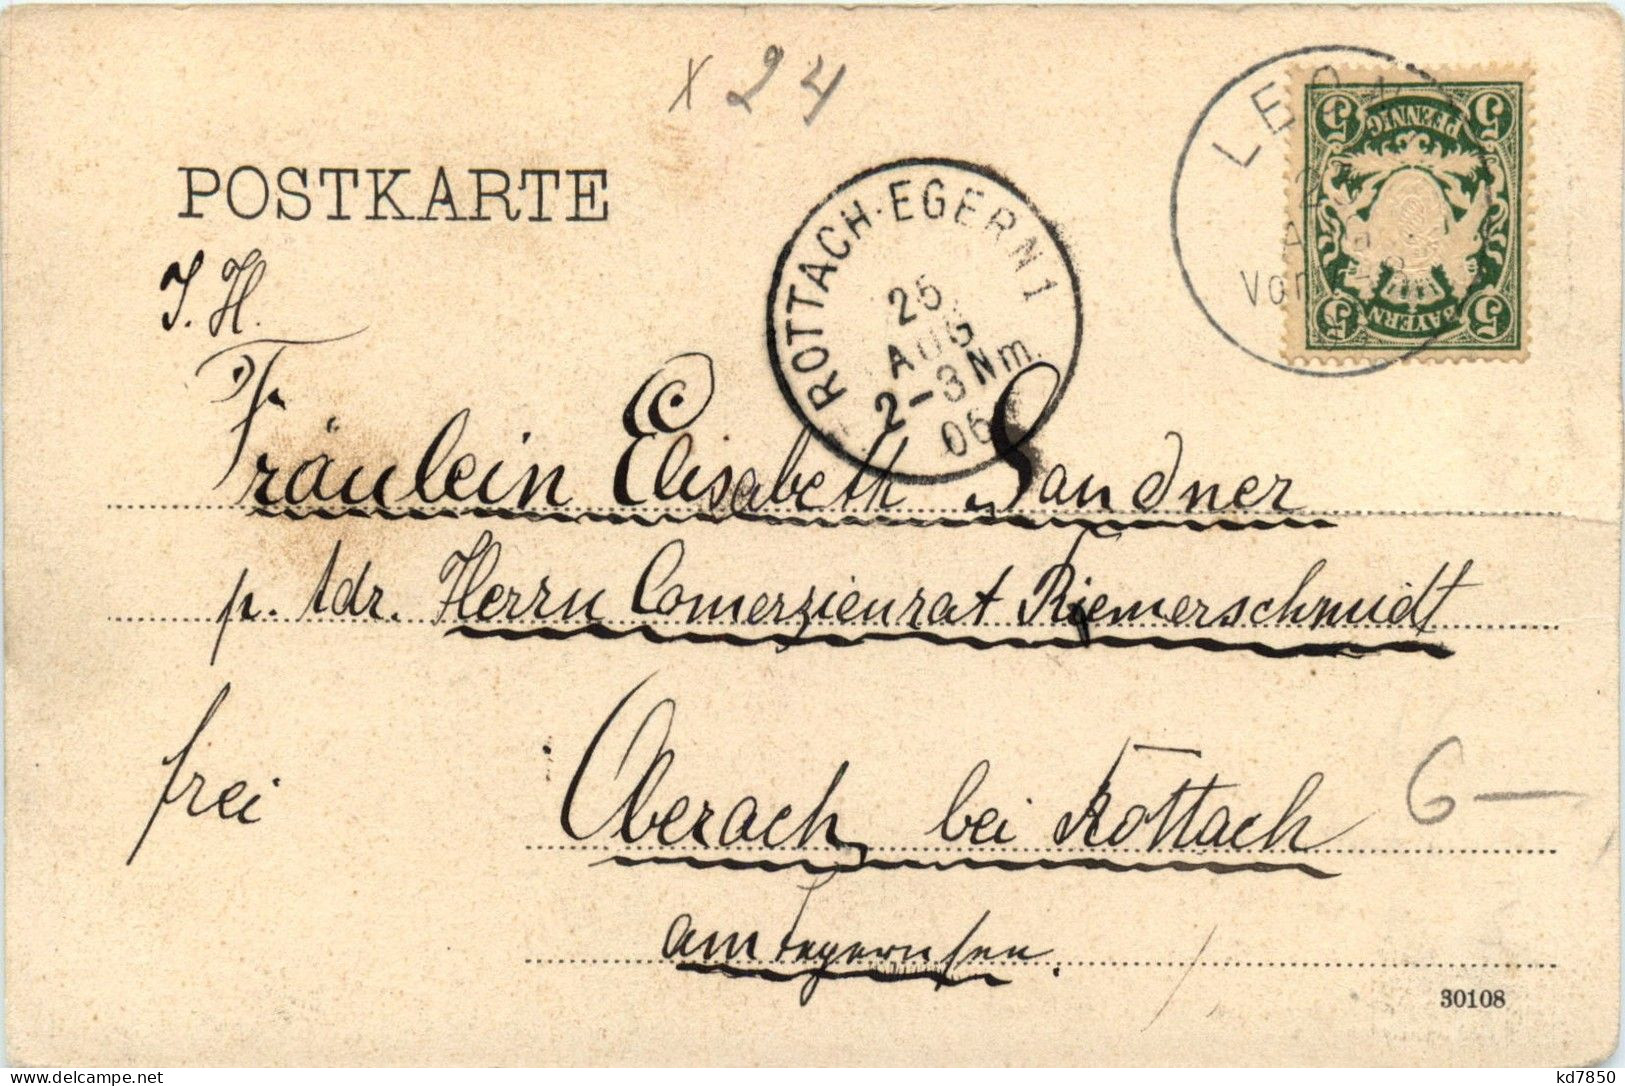 x 24
POSTKARTE
J. H.
ROTTACH-EGERN 1
25
AUG
2-3 Nm.
06
LEO
Vor
5 PFENNIG 5
5 BAYERN 5
Fräulein Elisabeth Sandner
p. Adr. Herrn Comerzienrat Riemerschmidt
frei
Oberach bei Rottach
am Tegernsee.
6 —
30108
www.delcampe.net
kd7850